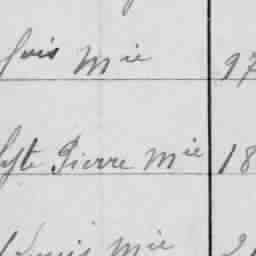 çois Mie 97
lyte Pierre Mie 18
Louis Mie 2